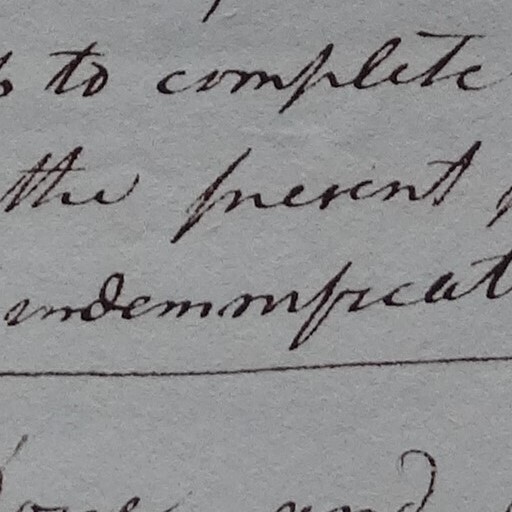 to complete
the present
indemnificat
and